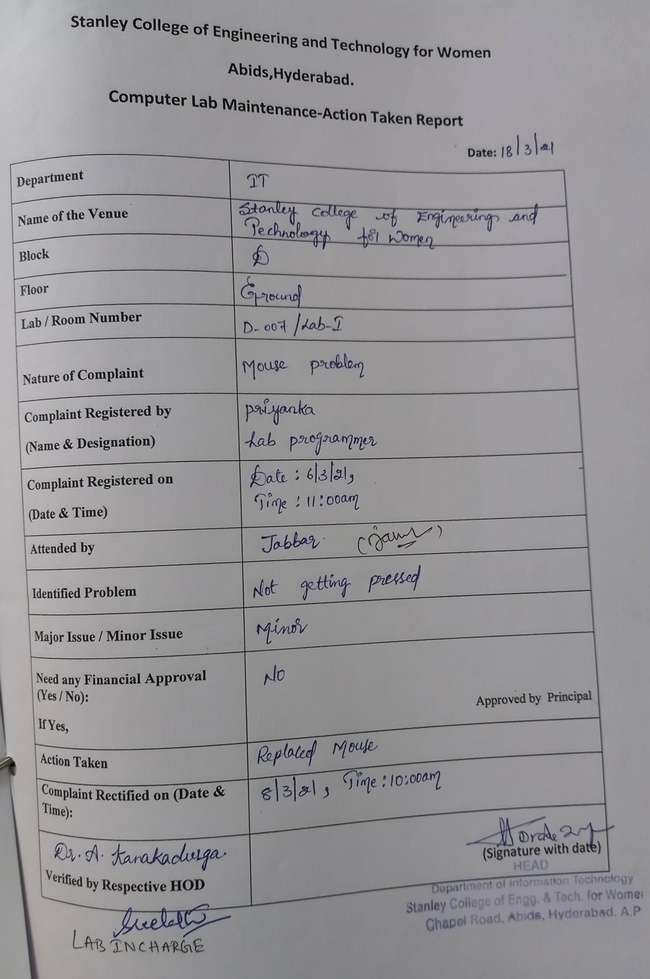 Stanley College of Engineering and Technology for Women
Abids,Hyderabad.
Computer Lab Maintenance-Action Taken Report
Date: 18/3/21
Department IT
Name of the Venue Stanley College of Engineering and
Technology for Women
Block D
Floor Ground
Lab / Room Number D-007/Lab-I
Nature of Complaint Mouse problem
Complaint Registered by Priyanka
(Name & Designation) Lab programmer
Complaint Registered on Date : 6/3/21,
(Date & Time) Time : 11:00am
Attended by Jabbar
Identified Problem Not getting pressed
Major Issue / Minor Issue Minor
Need any Financial Approval NO
(Yes / No):
Approved by Principal
If Yes,
Action Taken Replaced Mouse
Complaint Rectified on (Date & 8/3/21, Time:10:00am
Time):
Dr. A. Kanakadurga.
Verified by Respective HOD
(Signature with date)
HEAD
Department of Information Technology
Stanley College of Engg. & Tech. for Women
Chapel Road, Abids, Hyderabad. A.P
LAB INCHARGE